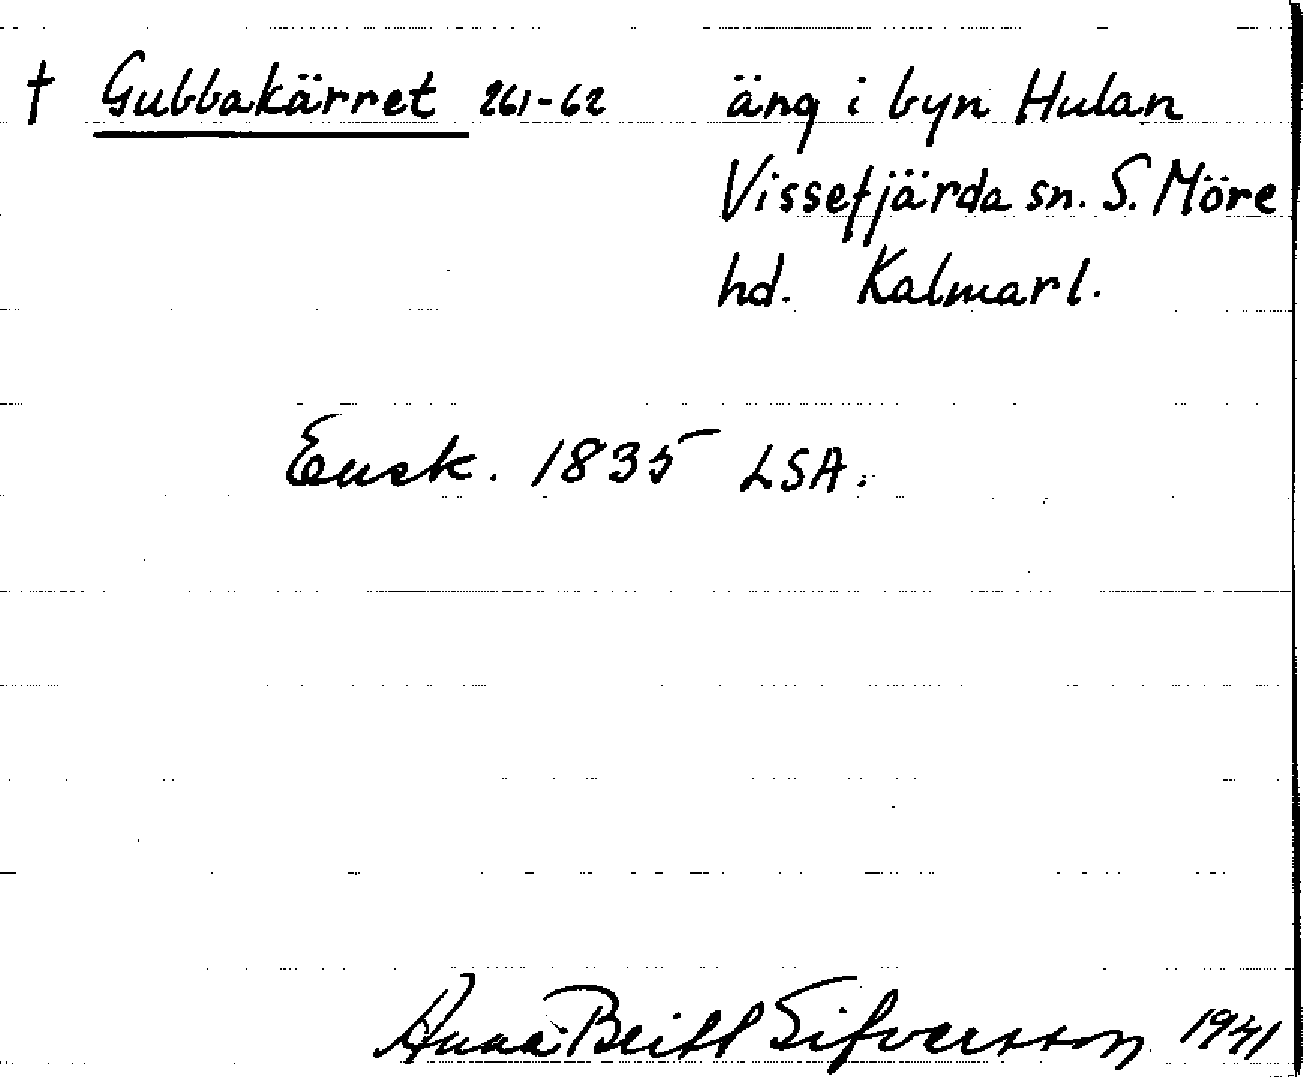 † Gubbakärret 261-62 äng i byn Hulan
Vissefjärda sn. S. Möre
hd. Kalmar l.
Ensk. 1835 LSA.
Anna-Britt Sifversson 1941